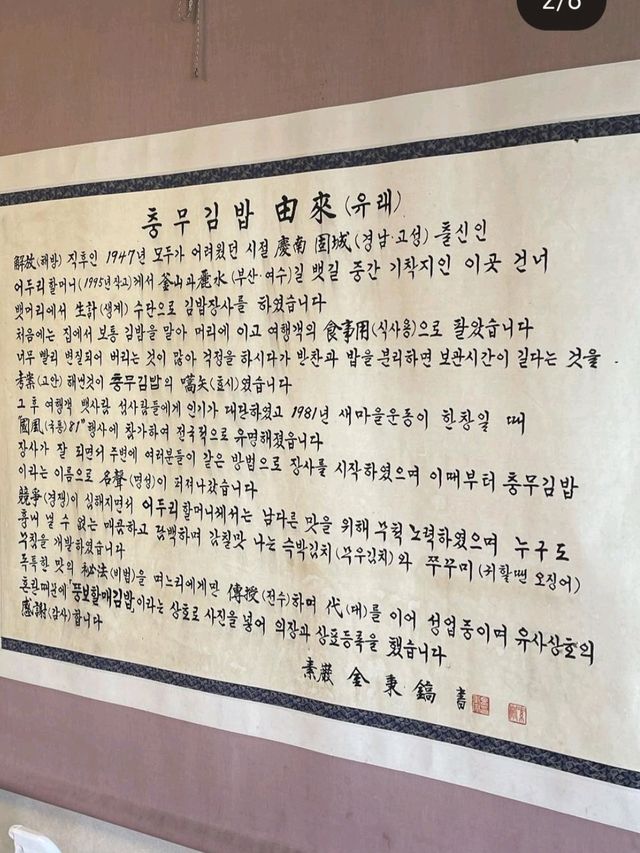 2/6
충무김밥 由來(유래)
解放(해방) 직후인 1947년 모두가 어려웠던 시절 慶南 固城(경남·고성) 출신인
어두리할머니(1995년 작고)께서 釜山과 麗水(부산·여수)길 뱃길 중간 기착지인 이곳 건너
뱃머리에서 生計(생계) 수단으로 김밥장사를 하였습니다
처음에는 집에서 보통 김밥을 말아 머리에 이고 여행객의 食事用(식사용)으로 팔았습니다
너무 빨리 변질되어 버리는 것이 많아 걱정을 하시다가 반찬과 밥을 분리하면 보관시간이 길다는 것을
考案(고안) 해낸것이 충무김밥의 嚆矢(효시)였습니다
그 후 여행객 뱃사람 섬사람들에게 인기가 대단하였고 1981년 새마을운동이 한창일 때
"國風(국풍)81" 행사에 참가하여 전국적으로 유명해졌읍니다
장사가 잘 되면서 주변에 여러분들이 같은 방법으로 장사를 시작하였으며 이때부터 충무김밥
이라는 이름으로 名聲(명성)이 퍼져나갔습니다
競爭(경쟁)이 심해지면서 어두리할머니께서는 남다른 맛을 위해 무척 노력하였으며 누구도
흉내 낼 수 없는 매콤하고 담백하며 감칠맛 나는 슥박김치(무우김치)와 쭈꾸미(귀할땐 오징어)
무침을 개발하였습니다
독특한 맛의 秘法(비법)을 며느리에게만 傳授(전수)하며 代(대)를 이어 성업중이며 유사상호의
혼란때문에 "뚱보할매김밥"이라는 상호로 사진을 넣어 의장과 상표등록을 했습니다
感謝(감사)합니다
素巖 金秉鎬 書